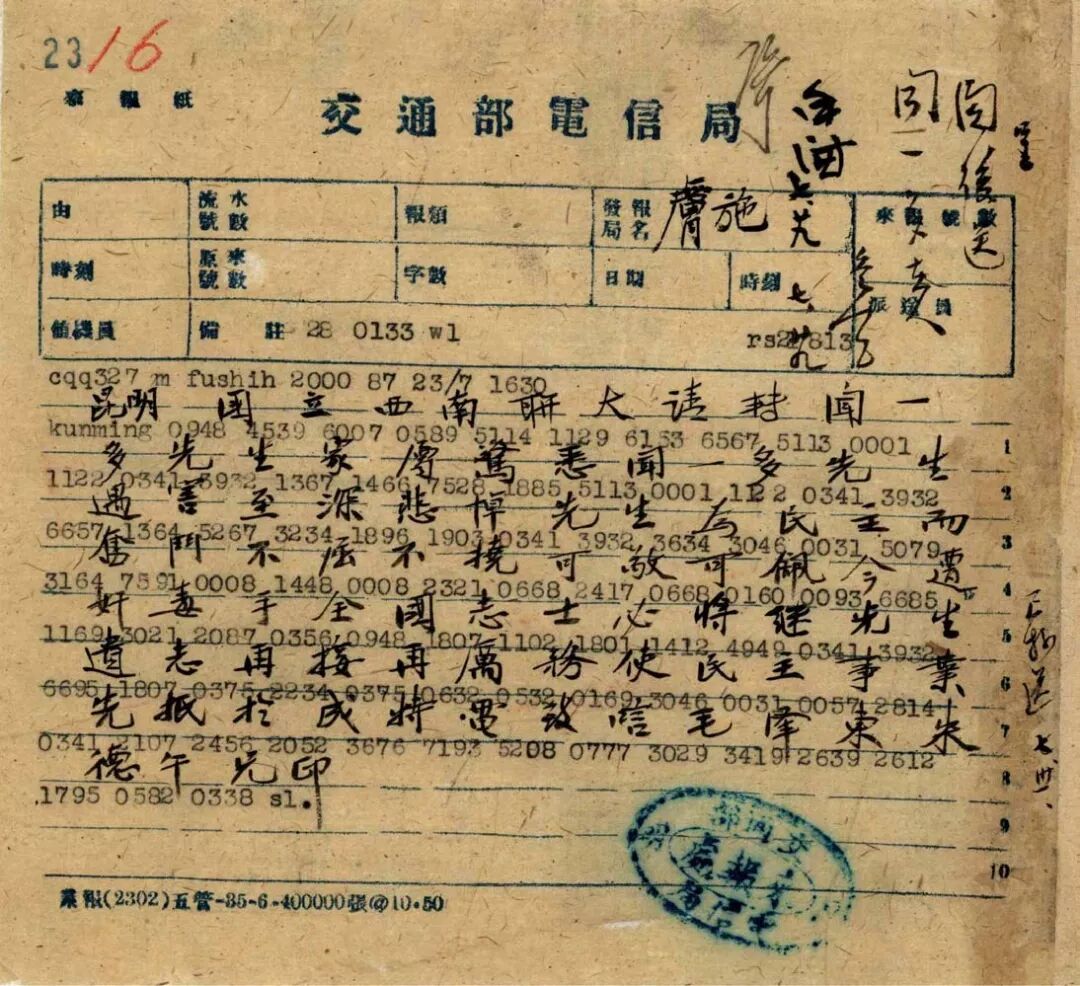 2316
來報紙
交通部電信局
由
流水號數
報類
發報局名
膚施
來報號數
時刻
原來號數
字數
日期
時刻
派送員
值機員
備註
28 0133 wl
rs21813
cqq327 m fushih 2000 87 23/7 1630
昆明 国立西南聯大请转闻一
kunming 0948 4539 6007 0589 5114 1129 6153 6567 5113 0001
多先生家属驚悉闻一多先生
1122 0341 3932 1367 1466 7528 1885 5113 0001 1122 0341 3932
遇害至深悲悼先生為民主而
6657 1364 5267 3234 1896 1903 0341 3932 3634 3046 0031 5079
奮鬥不屈不撓可敬可佩今遭
3164 7591 0008 1448 0008 2321 0668 2417 0668 0160 0093 6685
奸毒手全國志士必將继先生
1169 3021 2087 0356 0948 1807 1102 1801 1412 4949 0341 3932
遺志再接再厲務使民主事業
6695 1807 0375 2234 0375 0632 0532 0169 3046 0031 0057 2814
先抵於成特電致唁毛澤東朱
0341 2107 2456 2052 3676 7193 5208 0777 3029 3419 2639 2612
德午元印
1795 0582 0338 sl.
1
2
3
4
5
6
7
8
9
10
業報(2302)五管-35-6-400000張@10·50